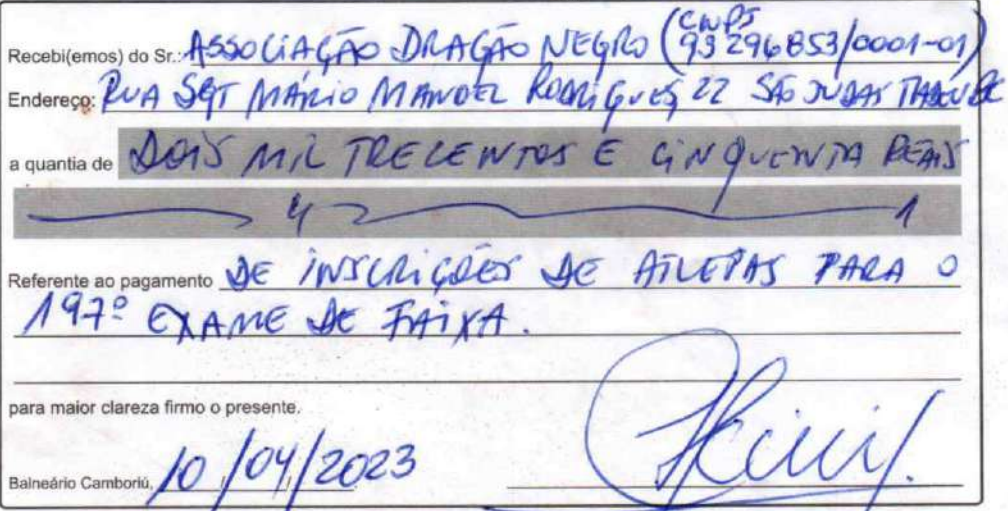 CNPJ
Recebi(emos) do Sr.: ASSOCIAÇÃO DRAGÃO NEGRO (93 296853/0001-01)
Endereço: RUA SGT MÁRIO MANOEL RODRIGUES 22 SÃO JUDAS TADEU
a quantia de DOIS MIL TRECENTOS E CINQUENTA REAIS
Referente ao pagamento DE INSCRIÇÕES DE ATLETAS PARA O
197º EXAME DE FAIXA.
para maior clareza firmo o presente.
Balneário Camboriú, 10/04/2023